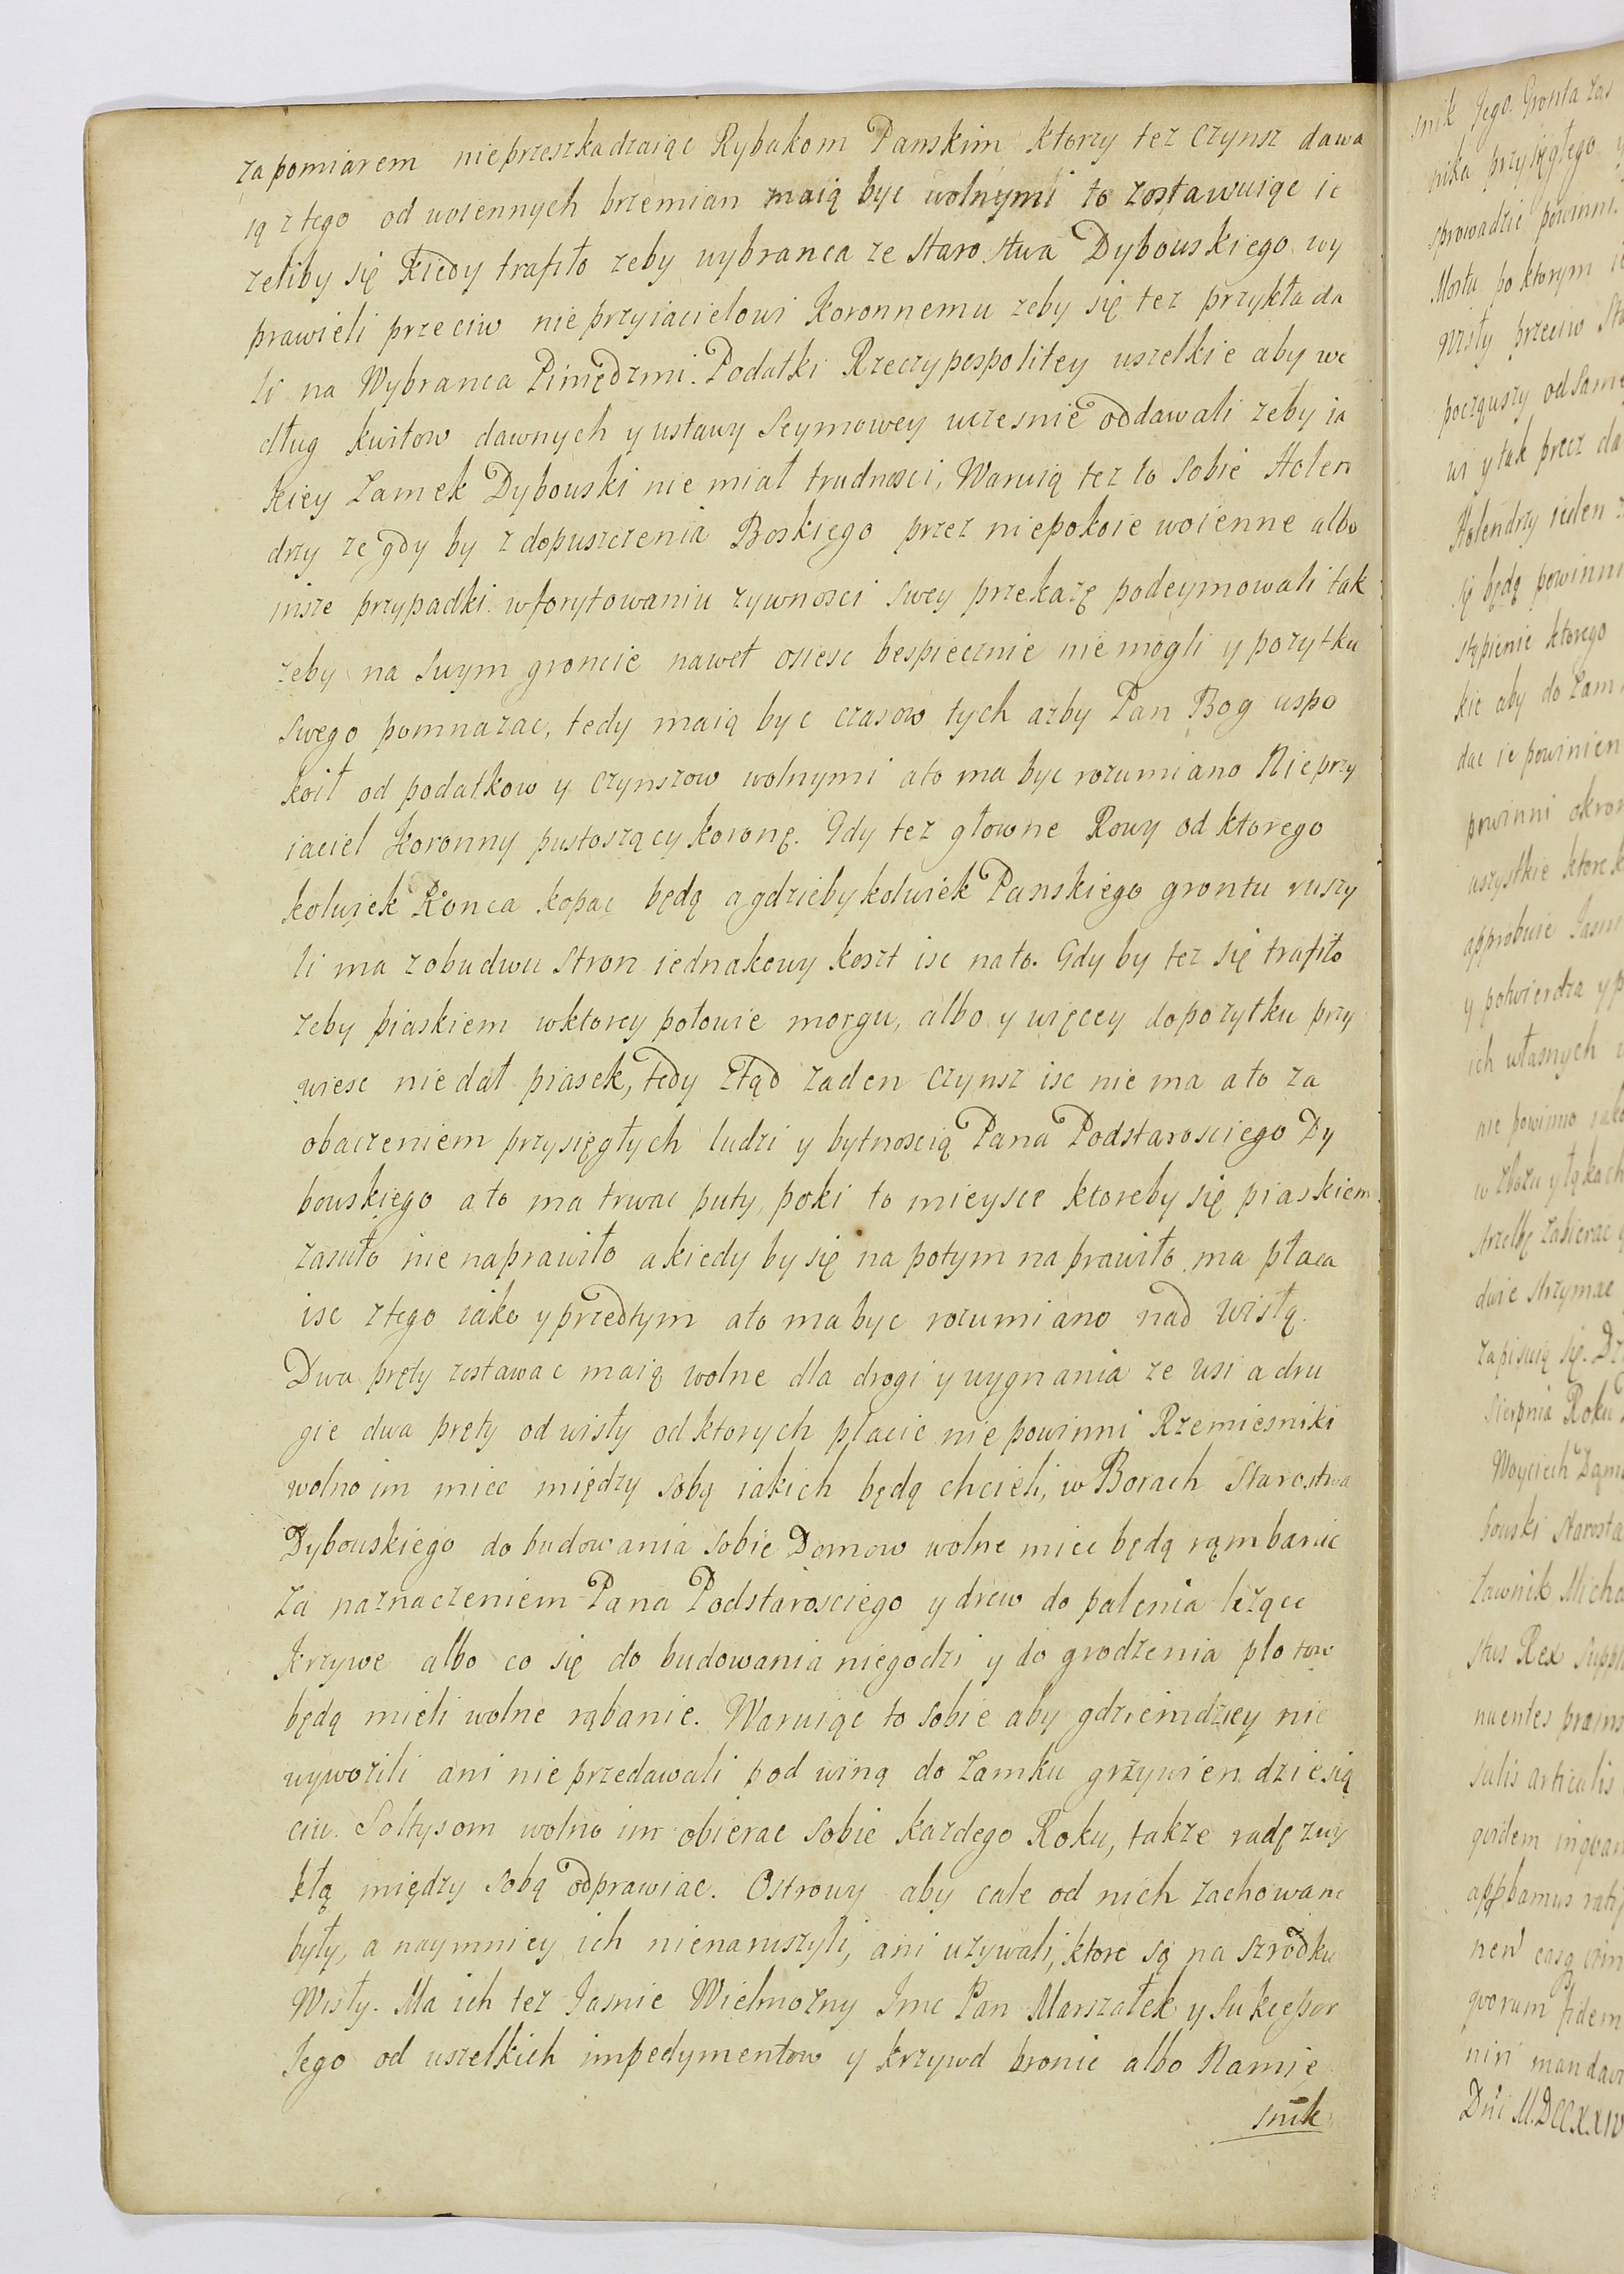 zapomiarem nieprzeszkadzaiąc Rybakom Panskim ktorzy tez czynsz dawa
ią z tego od woiennych brzemian maią byc wolnymi to zostawuiąc ie
zeliby się kiedy trafiło zeby wybranca ze Starostwa Dybowskiego wy
prawieli przeciw nieprzyiacielowi Koronnemu zeby się tez przykłada
li na Wybranca Piniędzmi. Podatki Rzeczypospolitey wszelkie aby we
dług kwitow dawnych y ustawy Seymowey wczesnie oddawali zeby ia
kiey Zamek Dybowski nie miał trudnosci, Waruią tez to sobie Holen
drzy ze gdy by z dopuszczenia Boskiego przez niepokoie woienne albo
insze przypadki w forytowaniu zywnosci swey przekazę podeymowali tak
zeby na swym groncie nawet osiesc bespiecznie nie mogli y pozytku
swego pomnazac, tedy maią byc czasow tych azby Pan Bog uspo
koił od podatkow y czynszow wolnymi ato ma byc rozumiano Nieprzy
iaciel Koronny pustoszący koronę. Gdy tez głowne Rowy od ktorego
kolwiek Konca kopac będą a gdzieby kolwiek Panskiego grontu ruszy
li ma z obudwu stron iednakowy koszt isc na to. Gdy by tez się trafiło
zeby piaskiem w ktorey połowie morgu, albo y więcey do pozytku przy
wiesc nie dał piasek, tedy ztąd zaden czynsz isc nie ma a to za
obaczeniem przysięgłych ludzi y bytnoscią Pana Podstarosciego Dy
bowskiego a to ma trwac puty, poki to mieysce ktoreby się piaskiem
zasuło nie naprawiło a kiedy by się na potym naprawiło ma płaca
isc z tego iako y przedtym ato ma byc rozumiano nad Wisłą.
Dwa pręty zostawac maią wolne dla drogi y wygnania ze wsi a dru
gie dwa pręty od wisły od ktorych płacic nie powinni Rzemiesniki
wolno im miec między sobą iakich będą chcieli, w Borach Starostwa
Dybowskiego do budowania sobie Domow wolne miec będą rąmbanie
za naznaczeniem Pana Podstarosciego y drew do palenia lezące
krzywe albo co się do budowania niegodzi y do grodzenia plotow
będą mieli wolne rąbanie. Waruiąc to sobie aby gdzieindziey nie
wywozili ani nie przedawali pod winą do Zamku grzywien dziesią
ciu. Soltysom wolno im obierac sobie kazdego Roku, takze radę zwy
kłą między sobą odprawiac. Ostrowy aby cale od nich zachowane
były, a naymniey ich nienaruszyli, ani uzywali, ktore są na szrodku
Wisły. Ma ich tez Jasnie Wielmozny Jmc Pan Marszałek y Sukcessor
Jego od wszelkich impedymentow y krzywd bronic albo Namie
snik
snik Jego. Gronta zas
nika przysięgłego y
sprowadzic powinni.
Mostu po ktorym
Wisły przeciw
począwszy od Same
wi y tak precz da
Holendrzy ieden
będą powinni
stąpienie ktorego
kie aby do Zam
dac ie powinien
powinni okro
wszystkie ktore
approbuie Jasni
y potwierdza y p
ich własnych
nie powinno iako
w zbozu y łąkach
strzelbę zabierac
dwie strzymac
zapisuią się.
Sierpnia Roku
Woyciech Dąm
bowski Starosta
Ławnik Micha
stus Rex Suppl
nuentes præins
sulis articulis
quidem inquan
appbamus rati
quorum fidem
niri mandavi
Dni M.DCCXXIV